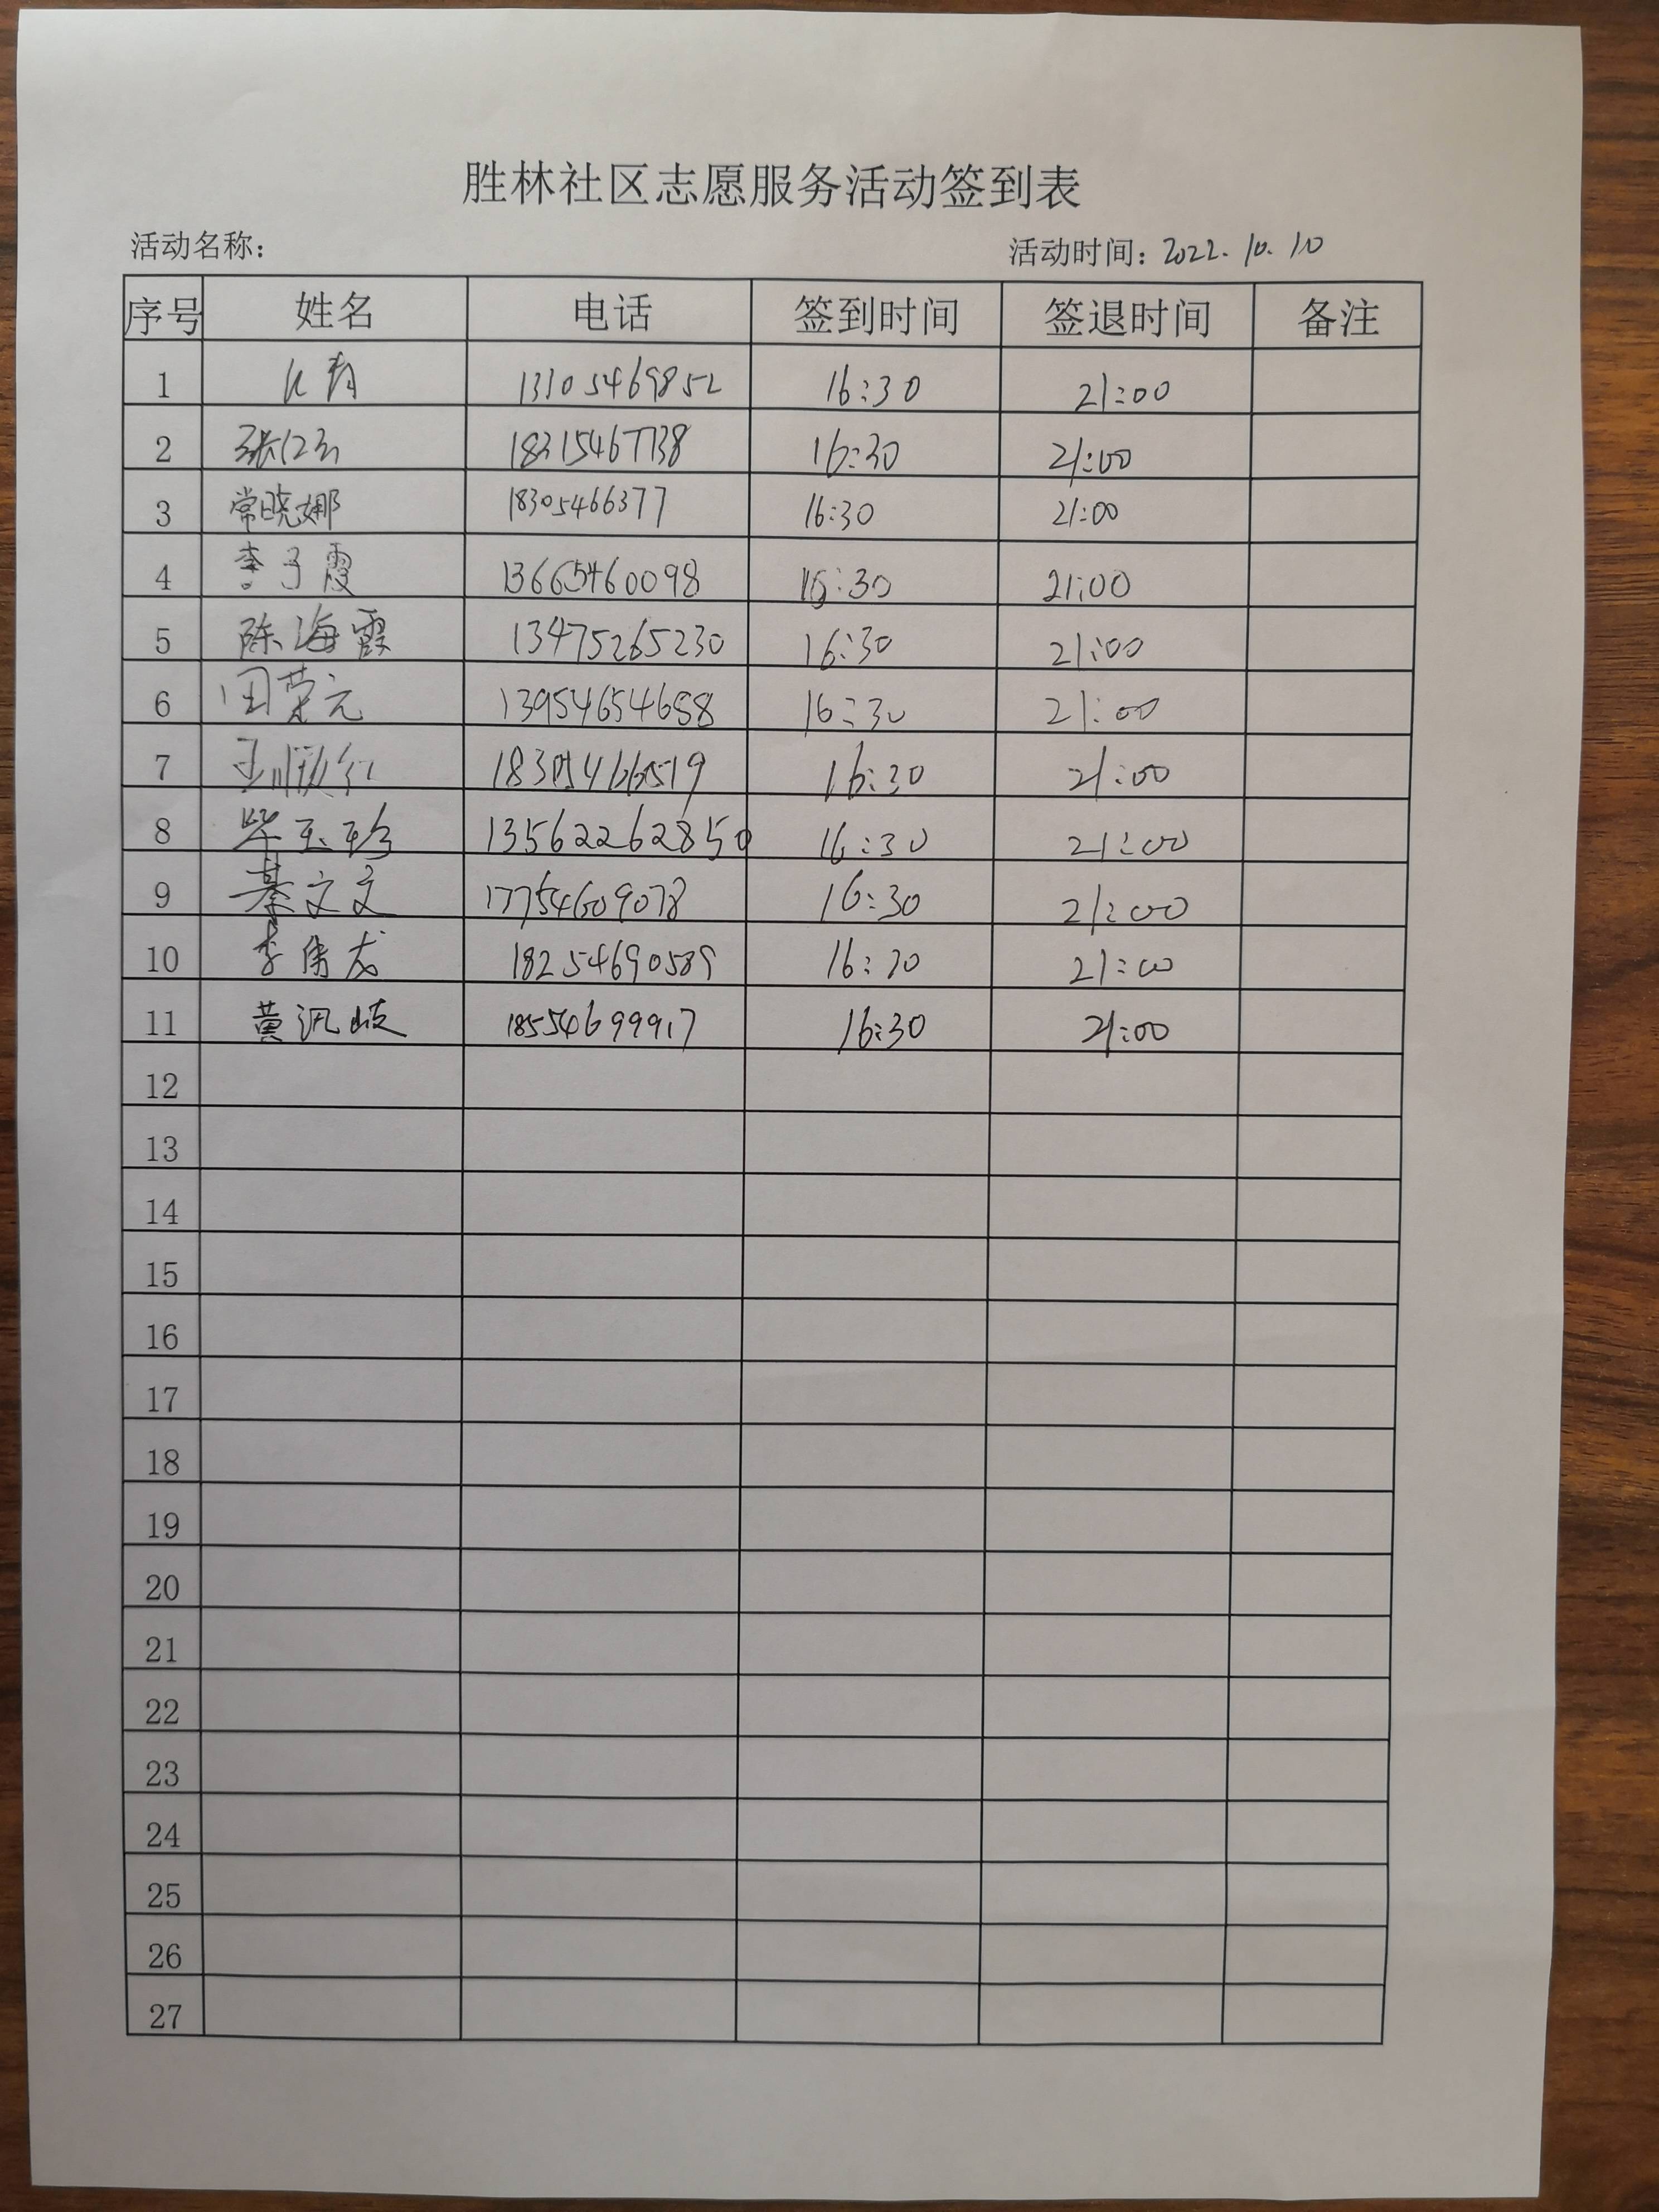 胜林社区志愿服务活动签到表
活动名称： 活动时间：2022.10.10
序号 姓名 电话 签到时间 签退时间 备注
1 13105469852 16:30 21:00
2 18315467738 16:30 21:00
3 常晓娜 18305466377 16:30 21:00
4 李子霞 13665460098 16:30 21:00
5 陈海霞 13475265230 16:30 21:00
6 田荣元 13954654658 16:30 21:00
7 王顺红 18305466519 16:30 21:00
8 毕玉珍 13562262850 16:30 21:00
9 綦文文 17754609078 16:30 21:00
10 李伟龙 18254690589 16:30 21:00
11 黄汎岐 18554699917 16:30 21:00
12
13
14
15
16
17
18
19
20
21
22
23
24
25
26
27